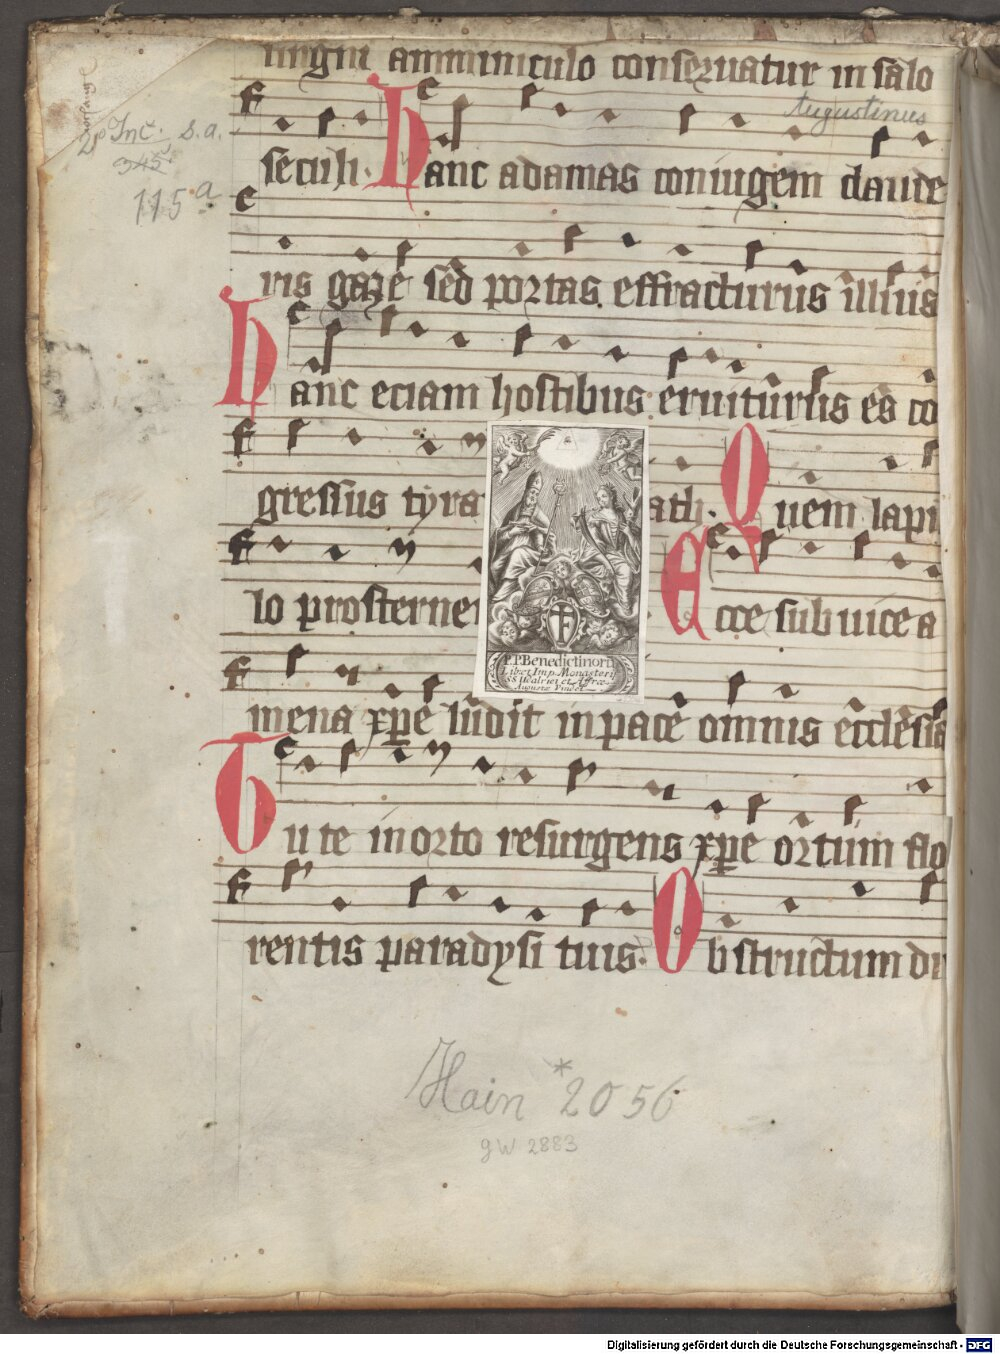 amminiculo conseruatur in salo
Augustinus
2° Inc. s.a.
345
115 a
seculi. Hanc adamas coniugem claude
ris gaze sed portas effracturus illius
Hanc eciam hostibus eruiturus es co
gressus tyra ath. Quem lapi
lo prosterne Ecce sub uice a
P.P. Benedictinorū
Liber Imp. Monasterij
SS. Udalrici et Afræ
Augustæ Vindel.
mena xp̄e ludit in pace omnis ecclesia
Tu te in orto resurgens xp̄e ortum flo
rentis paradysi tuis. Obstructum di
Hain *2056
GW 2883
Digitalisierung gefördert durch die Deutsche Forschungsgemeinschaft - DFG